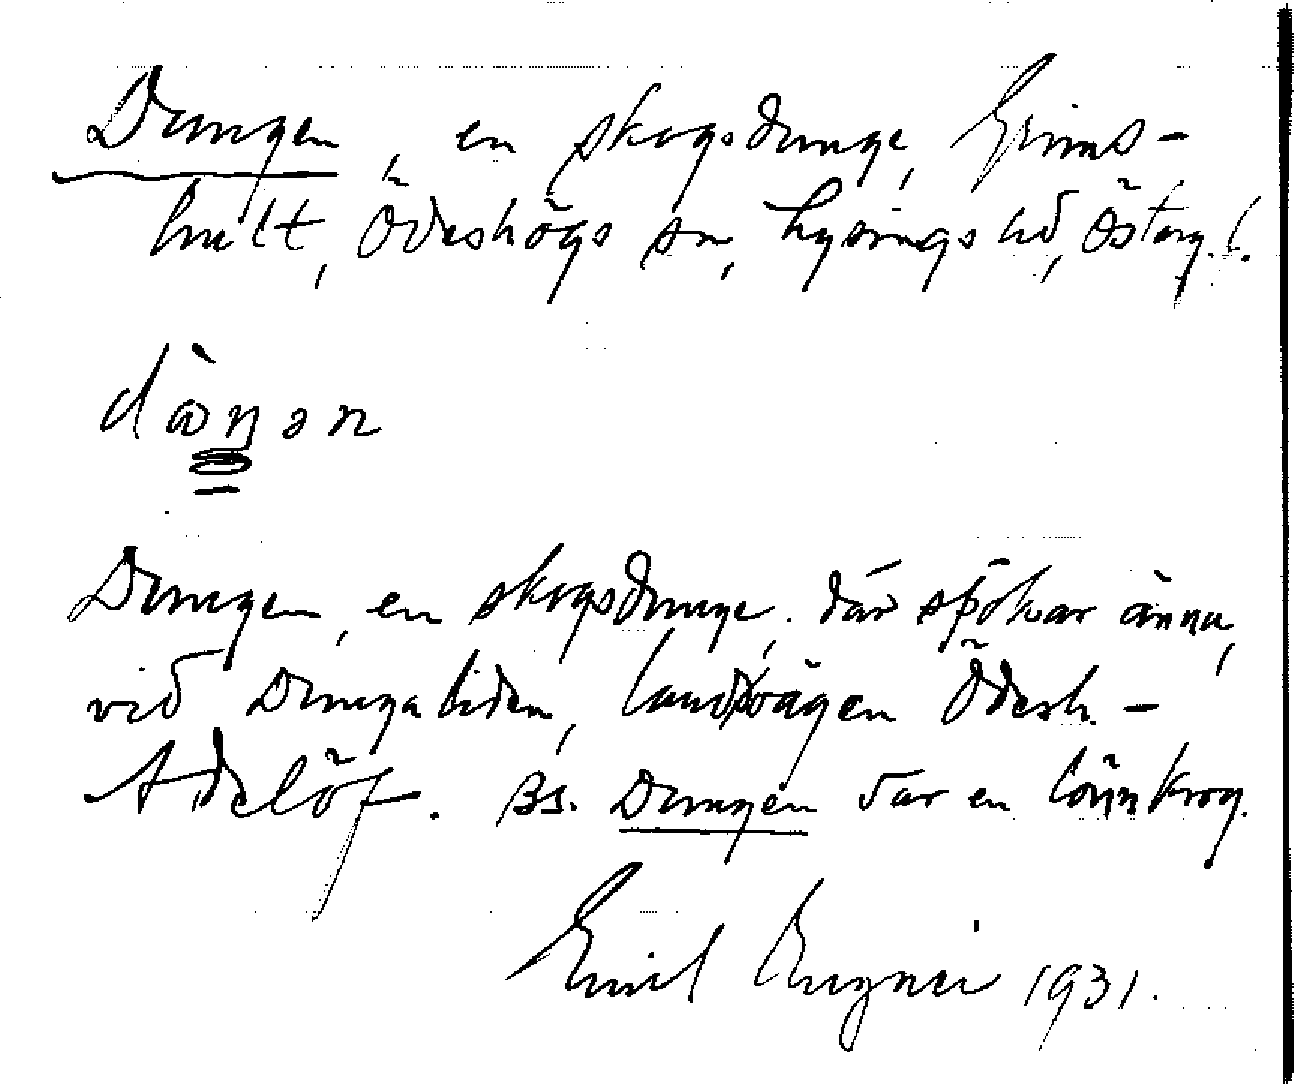 Dungen, en skogsdunge, Grims-
hult, Ödeshögs sn, Lysings hd, Östergl.
dàŋən
Dungen, en skogsdunge, där spökar ännu,
vid Dungaliden, landsvägen Ödesh. -
Adelöf. Bs. Dungen var en lönnkrog.
Emil 1931.